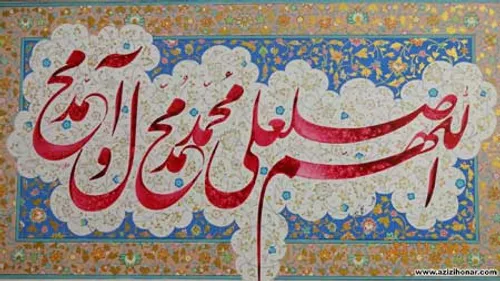 اللهم صل علی محمد محمد و آل محمد
www.azizihonar.com